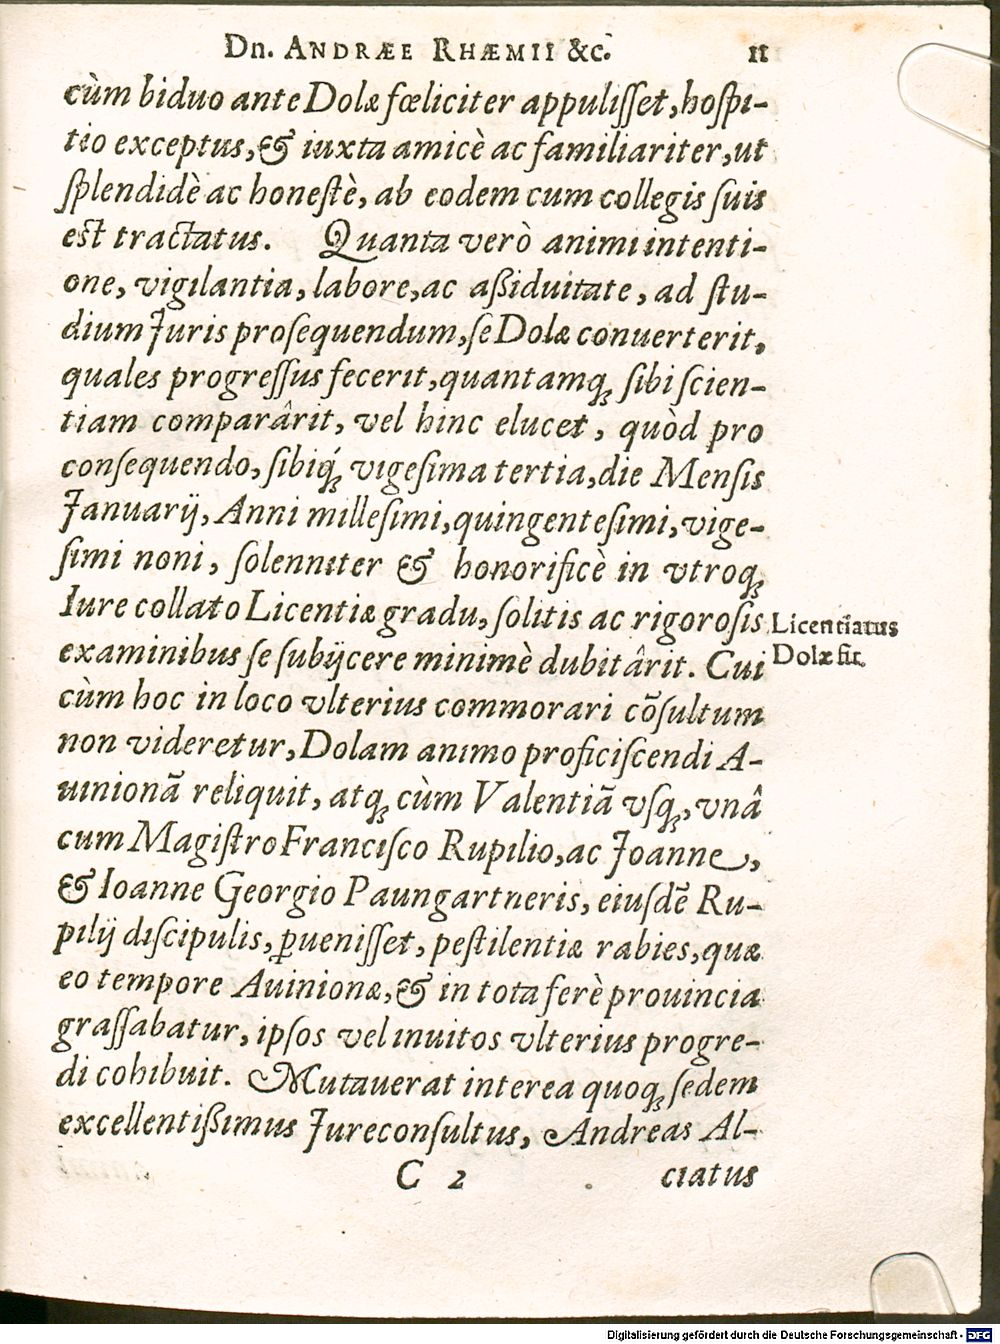 Dn. ANDRÆE RHÆMII &c. 11
cùm biduo ante Dolæ fœliciter appuliſſet, hoſpi-
tio exceptus, & iuxta amicè ac familiariter, ut
ſplendidè ac honeſtè, ab eodem cum collegis ſuis
est tractatus. Quanta verò animi intenti-
one, vigilantia, labore, ac aßiduitate, ad ſtu-
dium Juris proſequendum, ſe Dolæ conuerterit,
quales progreſſus fecerit, quantamq; ſibi ſcien-
tiam comparârit, vel hinc elucet, quòd pro
conſequendo, ſibiq́; vigeſima tertia, die Menſis
Januarij, Anni milleſimi, quingenteſimi, vige-
ſimi noni, ſolenniter & honorificè in vtroq;
Iure collato Licentiæ gradu, ſolitis ac rigoroſis
Licentiatus
examinibus ſe ſubijcere minimè dubitârit. Cui
Dolæ fit.
cùm hoc in loco vlterius commorari cõſultum
non videretur, Dolam animo proficiſcendi A-
uinionã reliquit, atq; cùm Valentiã vſq;, vnâ
cum Magiſtro Franciſco Rupilio, ac Joanne,
& Ioanne Georgio Paungartneris, eiuſdẽ Ru-
pilij diſcipulis, ꝑueniſſet, peſtilentiæ rabies, quæ
eo tempore Auinionæ, & in tota ferè prouincia
graſſabatur, ipſos vel inuitos vlterius progre-
di cohibuit. Mutauerat interea quoq; ſedem
excellentißimus Jureconſultus, Andreas Al-
C 2 ciatus
Digitalisierung gefördert durch die Deutsche Forschungsgemeinschaft - DFG